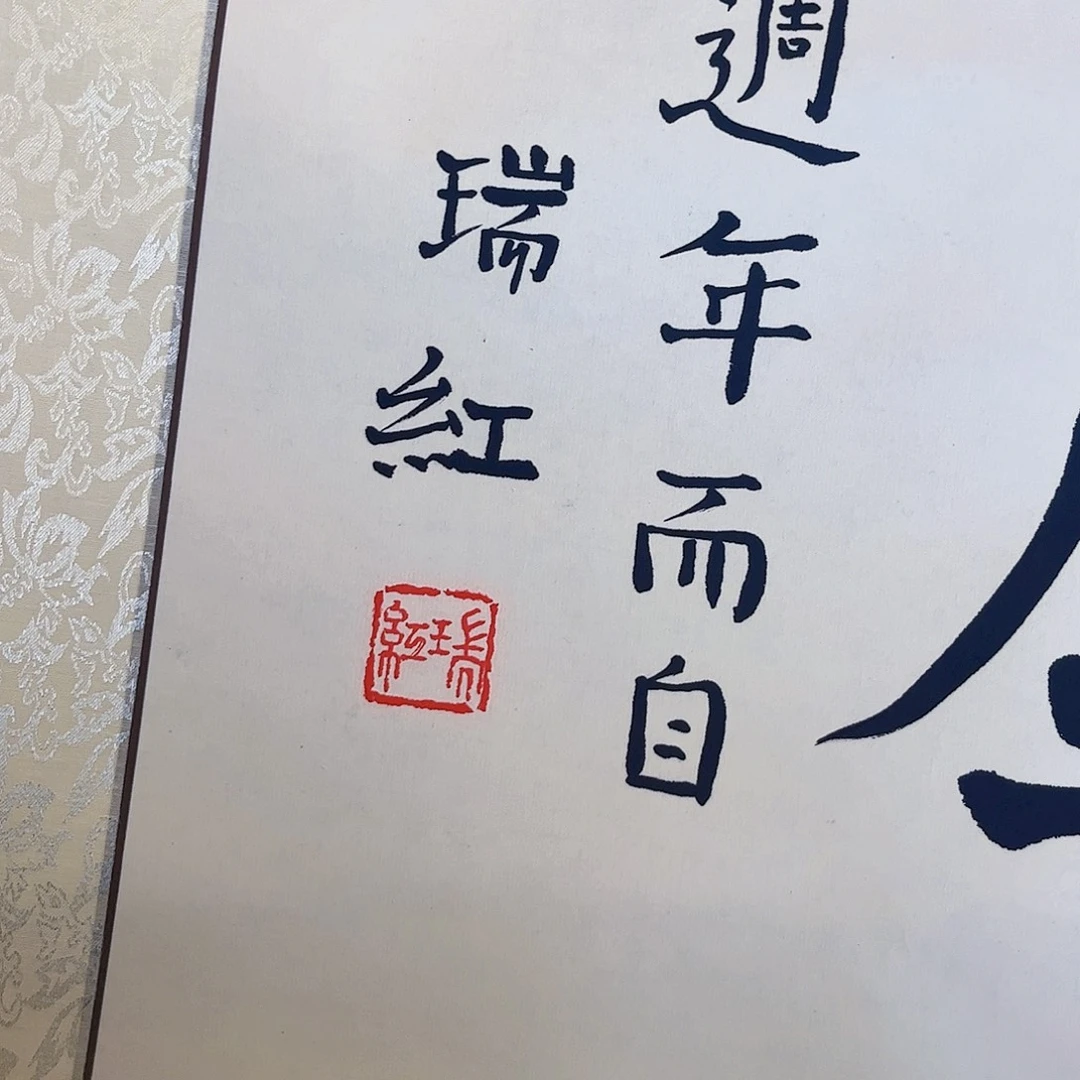 週年而自
瑞紅
瑞紅